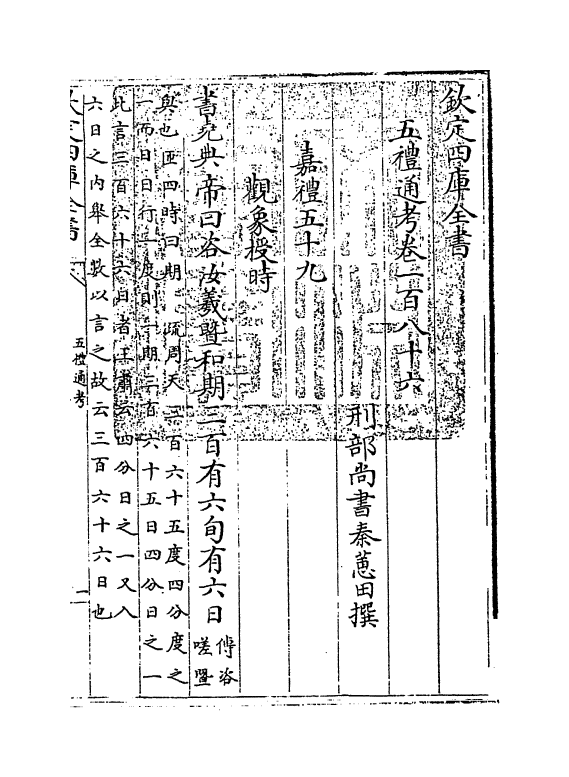 欽定四庫全書
五禮通考卷一百八十六
刑部尚書秦蕙田撰
嘉禮五十九
觀象授時
書堯典帝曰咨汝羲暨和期三百有六旬有六日
傳咨
嗟暨
與也匝四時曰期 疏周天三百六十五度四分度之
一而日日行一度則一期三百六十五日四分日之一
此言三百六十六日者王肅云四分日之一又入
六日之内舉全數以言之故云三百六十六日也
欽定四庫全書
五禮通考